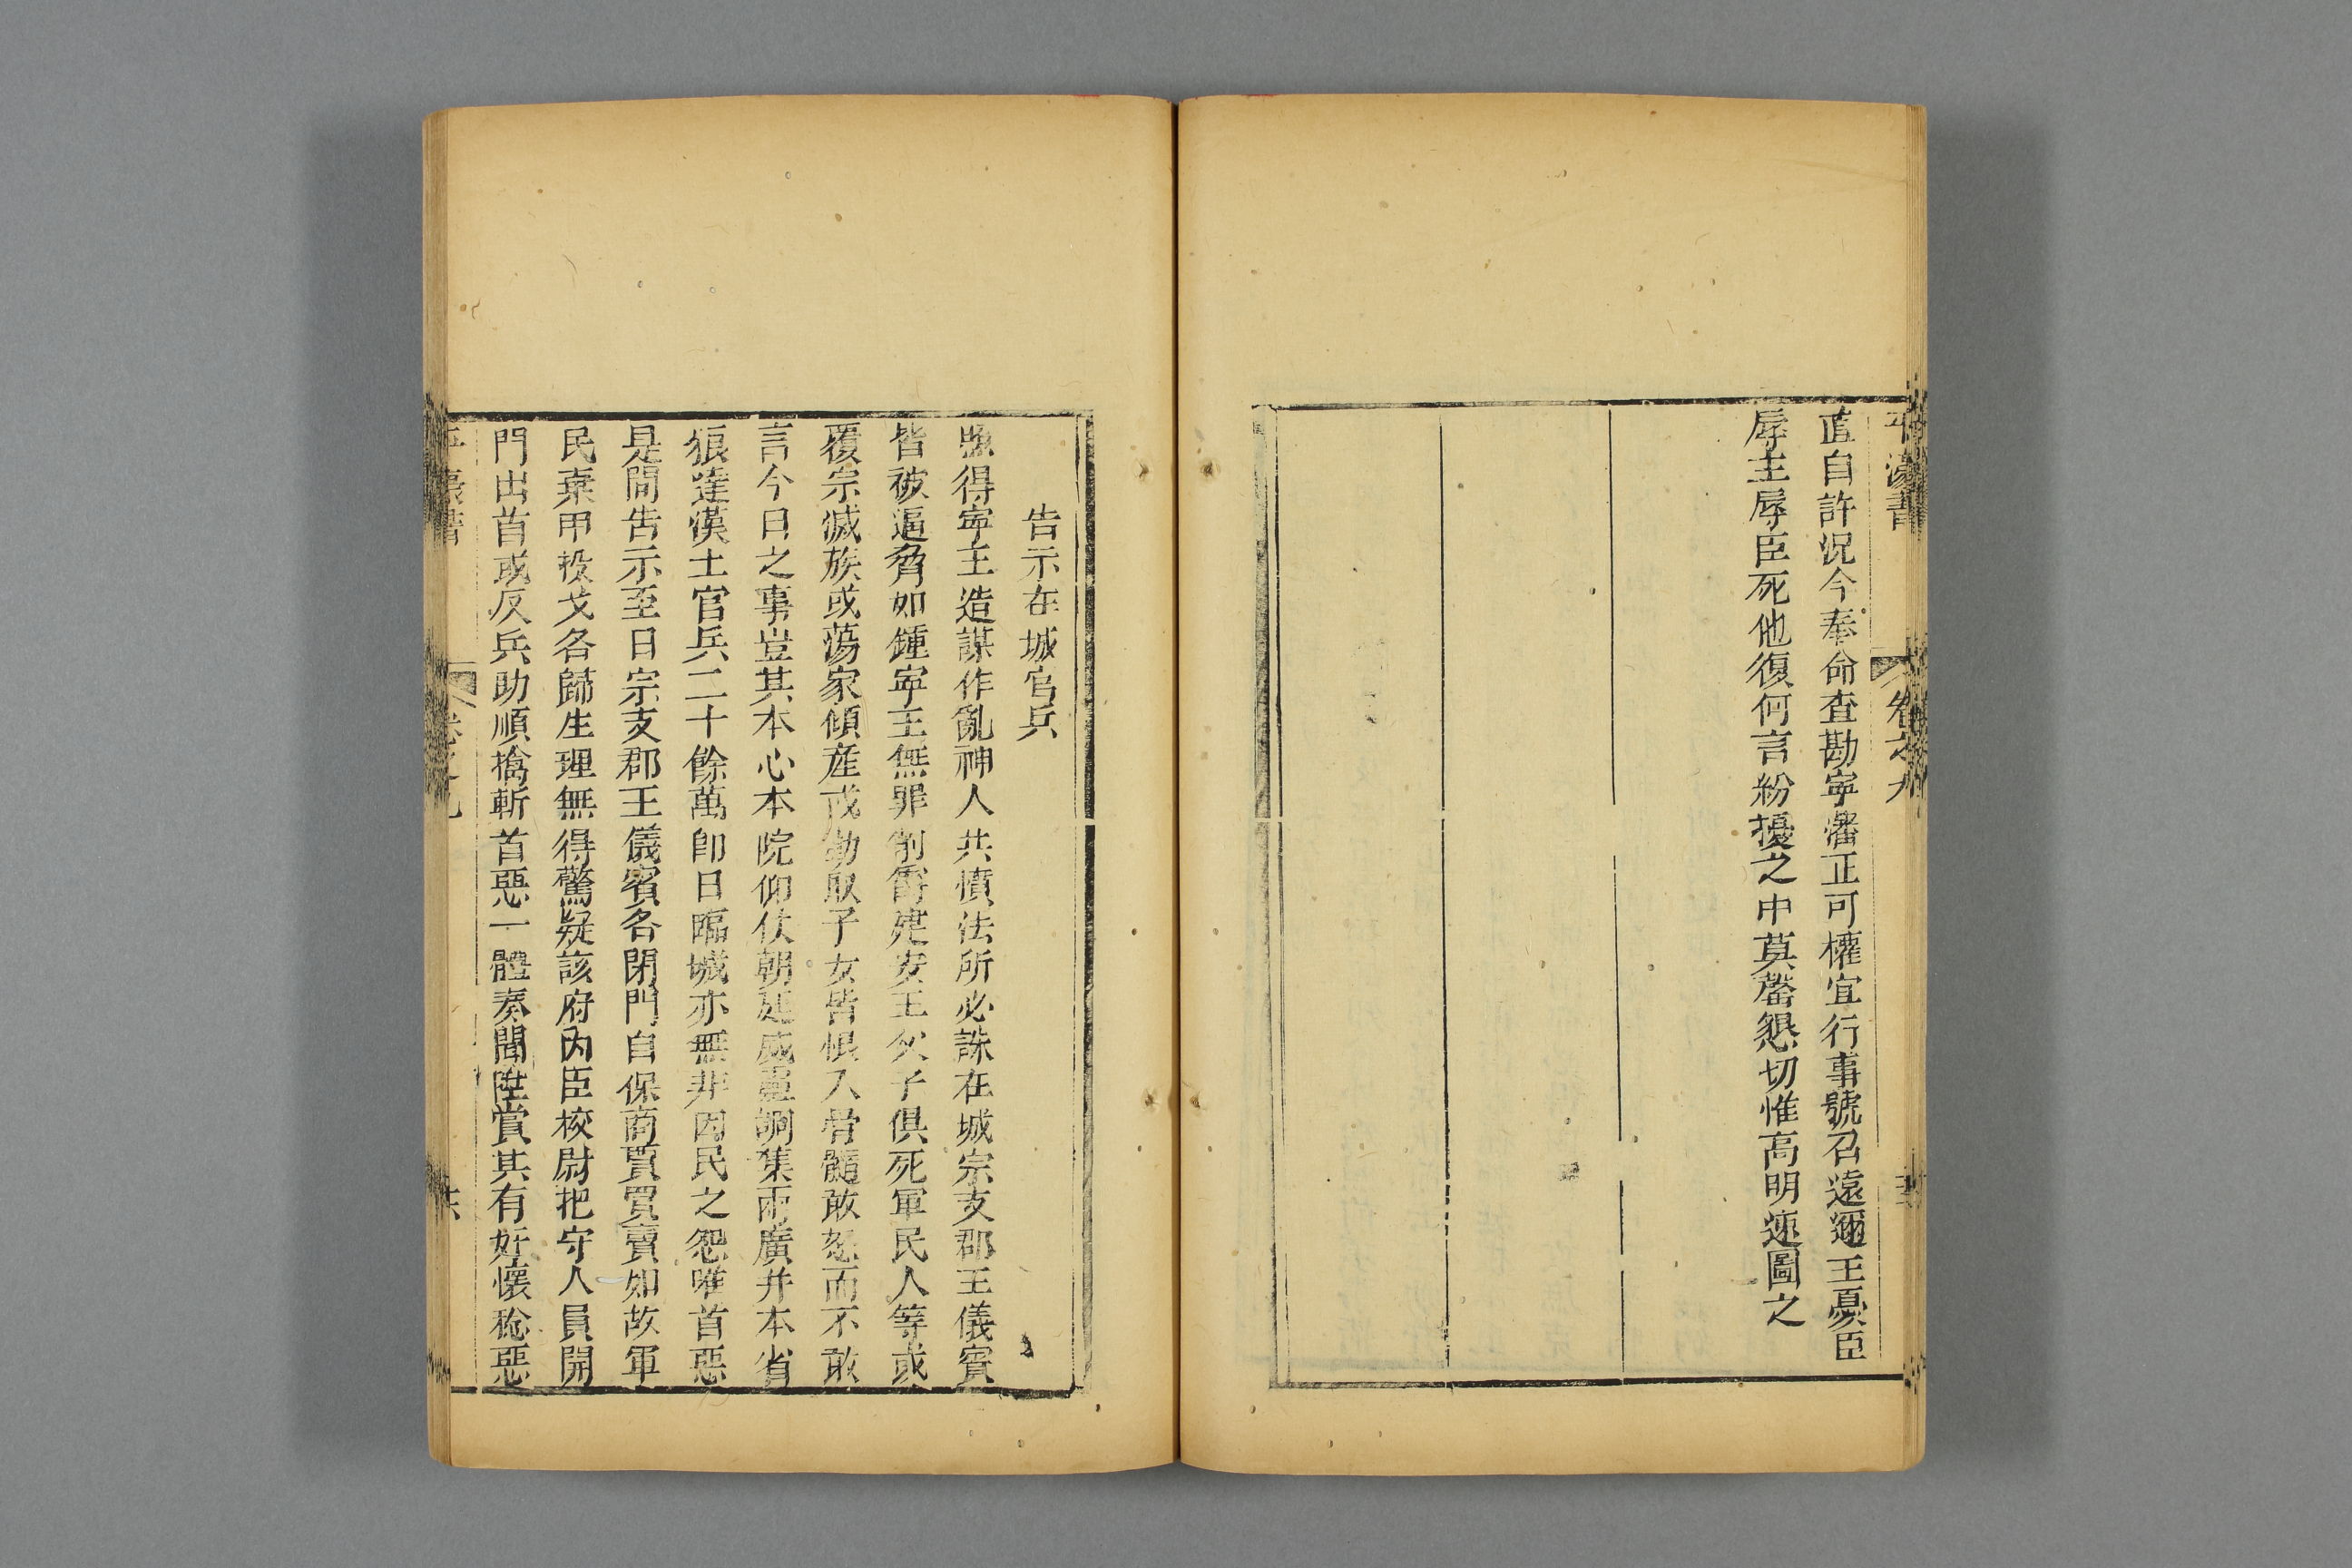 平濠書
卷之九
直自許況今奉命查勘寧藩正可權宜行事號召遠邇王憂臣
辱主辱臣死他復何言紛擾之中莫罄懇切惟高明速圖之
告示在城官兵
照得寧王造謀作亂神人共憤法所必誅在城宗支郡王儀賓
皆被逼脅如鍾寧王無罪削爵建安王父子俱死軍民人等或
覆宗滅族或蕩家傾産或勒取子女皆恨入骨髓敢怒而不敢
言今日之事豈其本心本院仰仗朝廷威靈調集兩廣并本省
狼達漢土官兵二十餘萬卽日臨城亦無非因民之怨唯首惡
是問告示至日宗支郡王儀賓各閉門自保商賈買賣如故軍
民棄甲投戈各歸生理無得驚疑該府內臣校尉把守人員開
門出首或反兵助順擒斬首惡一體奏聞陞賞其有奸懷稔惡